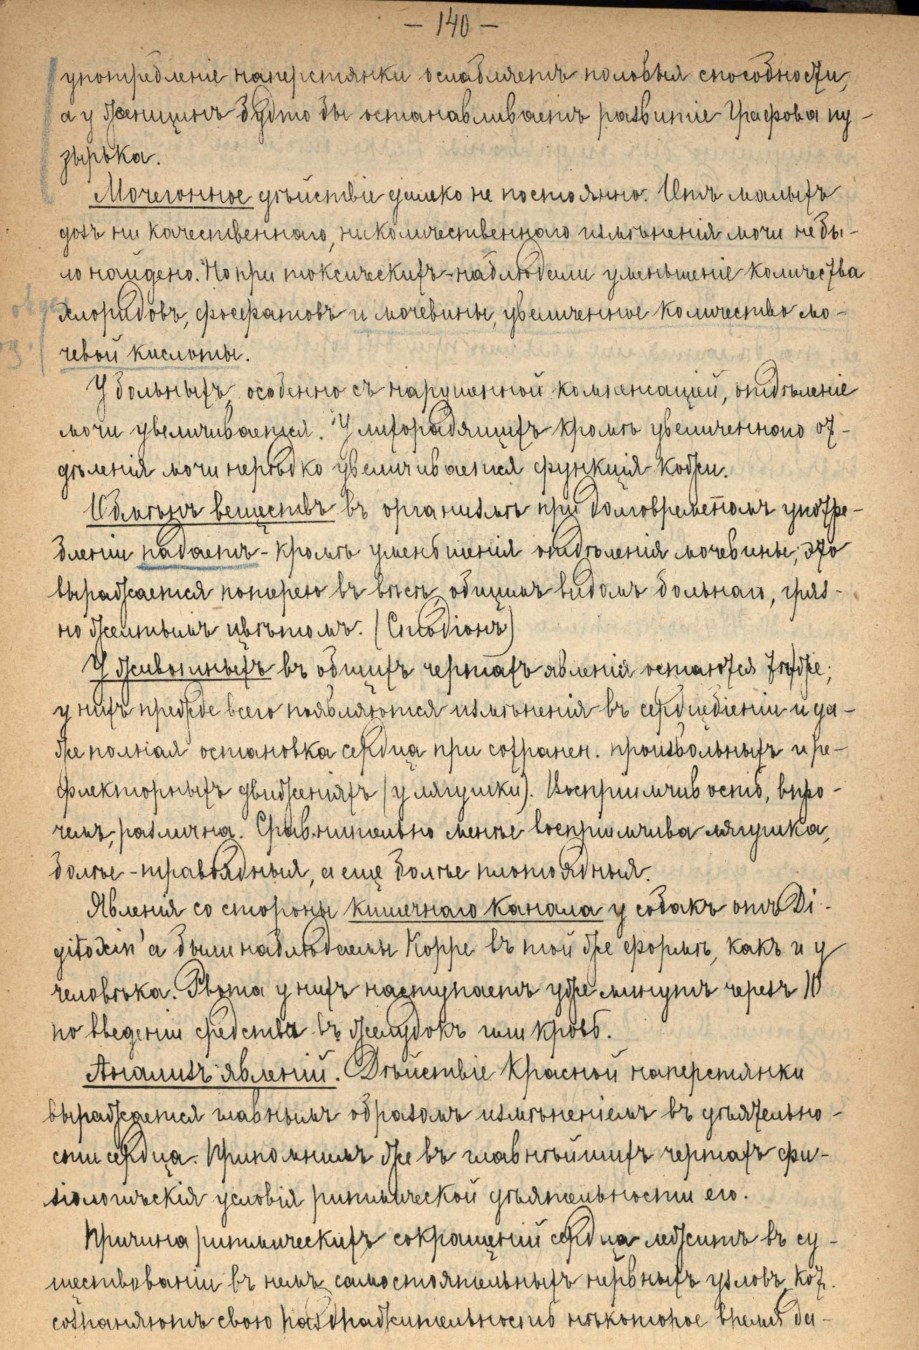 - 140 -
употребленіе наперстянки ослабляетъ половыя способности,
а у женщинъ будто бы останавливаетъ развитіе Графова пу-
зырька.
Мочегонное дѣйствіе далеко не постоянно. Отъ малыхъ
дозъ ни качественнаго, ни количественнаго измѣненія мочи не бы-
ло найдено. Но при токсическихъ - наблюдали уменьшеніе количества
хлоридовъ, фосфатовъ и мочевины, увеличенное количество мо-
чевой кислоты.
У больныхъ, особенно съ нарушенной компенсаціей, отдѣленіе
мочи увеличивается. У лихорадящихъ кромѣ увеличеннаго от-
дѣленія мочи нерѣдко увеличивается функція кожи.
Обмѣнъ веществъ въ организмѣ при долговременномъ употре-
бленіи падаетъ - кромѣ уменьшенія отдѣленія мочевины, это
выражается потерею въ вѣсѣ, общимъ видомъ больнаго, гряз-
но желтымъ цвѣтомъ. (Сподіонъ)
У животныхъ въ общихъ чертахъ явленія остаются тѣ же;
у нихъ прежде всего появляются измѣненія въ сердцебіеніи и да-
же полная остановка сердца при сохранен. произвольныхъ и ре-
флекторныхъ движеніяхъ (у лягушки). Воспріимчивость, впро-
чемъ, различна. Сравнительно менѣе воспріимчива лягушка,
болѣе - травоядныя, а еще болѣе плотоядныя.
Явленія со стороны кишечнаго канала у собакъ отъ Di-
gitoxin'а были наблюдаемы Коppe въ той же формѣ, какъ и у
человѣка. Рвота у нихъ наступаетъ уже минутъ черезъ 10
по введеніи средства въ желудокъ или кровь.
Анализъ явленій. Дѣйствіе красной наперстянки
выражается главнымъ образомъ измѣненіемъ въ дѣятельно-
сти сердца. Припомнимъ же въ главнѣйшихъ чертахъ фи-
зіологическія условія ритмической дѣятельности его.
Причина ритмическихъ сокращеній сердца лежитъ въ су-
ществованіи въ немъ самостоятельныхъ нервныхъ узловъ, кот.
сохраняютъ свою раздражительность нѣкоторое время да-